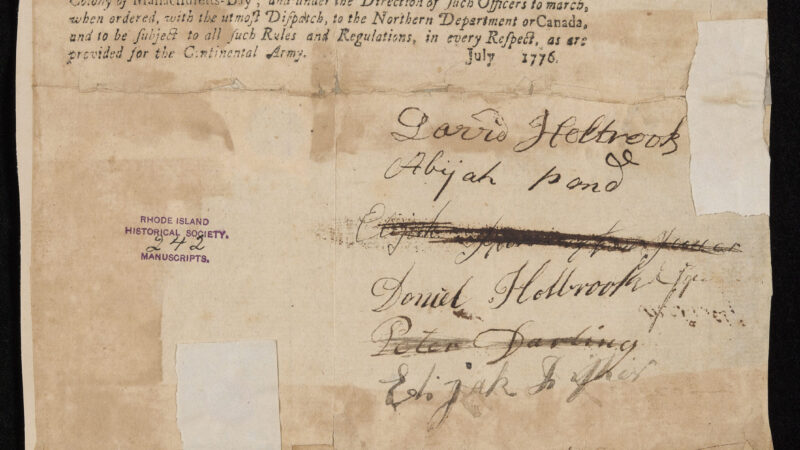 Colony of Massachusetts-Bay; and under the Direction of such Officers to march,
when ordered, with the utmost Dispatch, to the Northern Department or Canada,
and to be subject to all such Rules and Regulations, in every Respect, as are
provided for the Continental Army. July 1776.
David Holbrook
Abijah pond
Elijah
Daniel Holbrook
Peter Darling
Elijah
RHODE ISLAND
HISTORICAL SOCIETY.
242
MANUSCRIPTS.